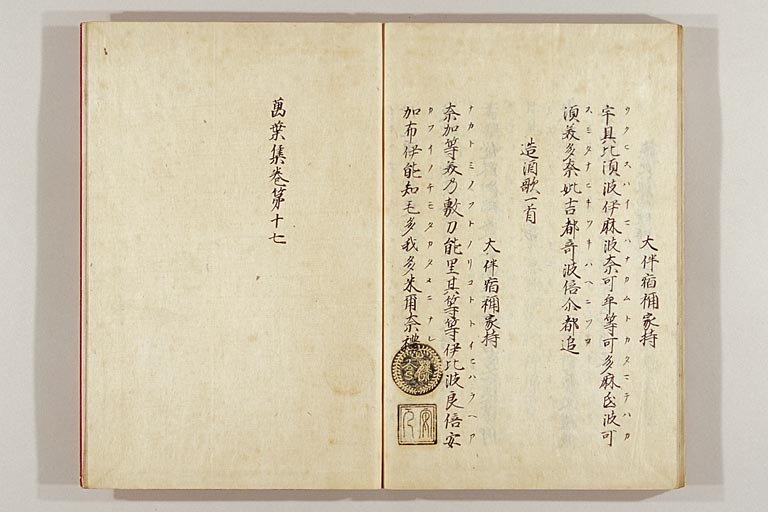 大伴宿祢家持
宇具比須波伊麻波奈可牟等可多麻氐波可
ウクヒスハイマハナカムトカタマテハカ
須美多奈妣吉都奇波倍尒都追
スミタナヒキツキハヘニツヽ
造酒歌一首
大伴宿祢家持
奈加等美乃敷刀能里其等等伊比波良倍安
ナカトミノフトノリコトトイヒハラヘア
加布伊能知毛多我多米爾奈禮
カフイノチモタカタメニナレ
萬葉集巻第十七